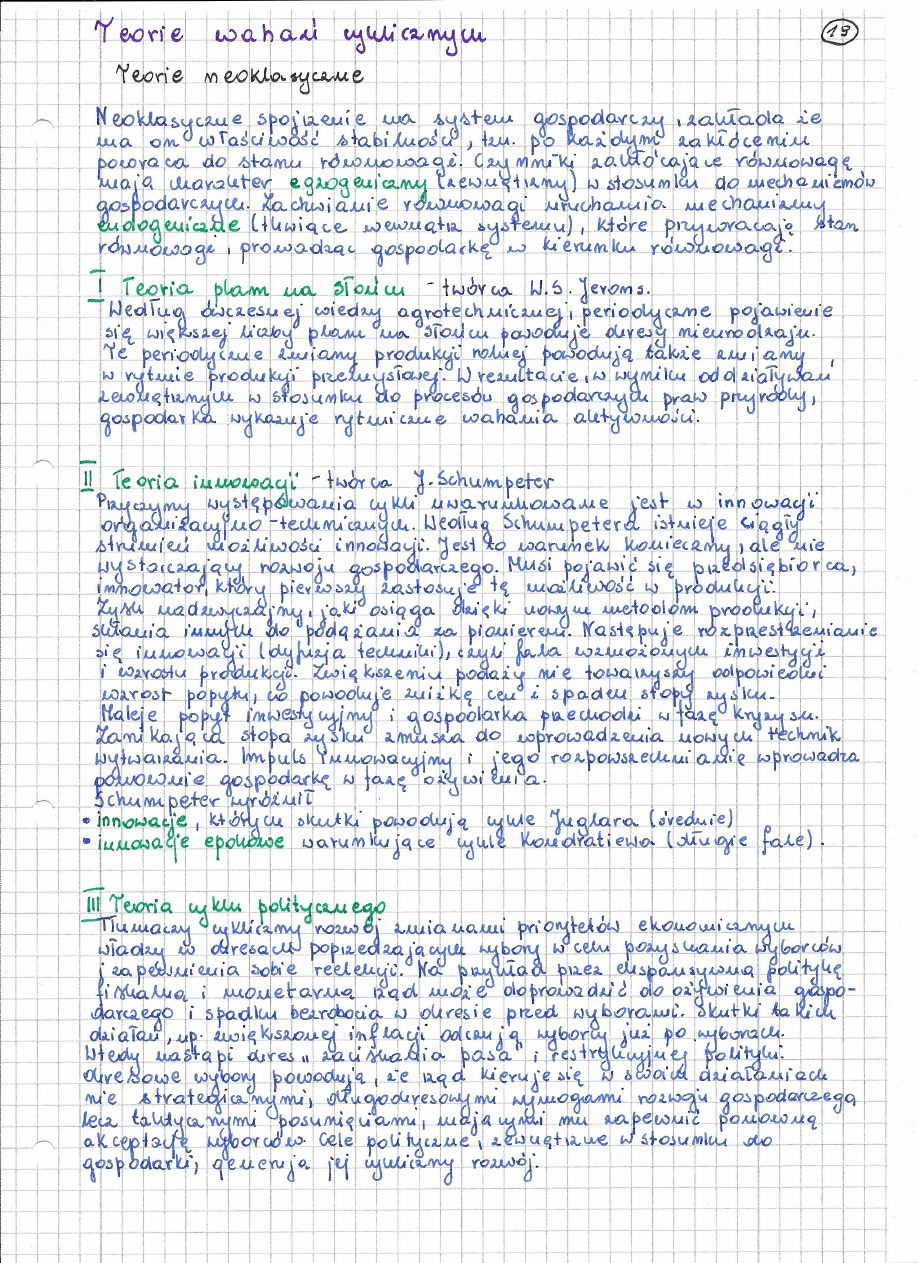 Teorie wahań cyklicznych
19
Teorie neoklasyczne
Neoklasyczne spojrzenie na system gospodarczy, zakłada że
ma on właściwość stabilności, tzn. po każdymi zakłóceniu
powraca do stanu równowagi. Czynniki zakłócające równowagę
mają charakter egzogeniczny (zewnętrzny) w stosunku do mechanizmów
gospodarczych. Zachwianie równowagi uruchamia mechanizmy
endogeniczne (tkwiące wewnątrz systemu), które przywracają stan
równowagi, prowadząc gospodarkę w kierunku równowagi.
I Teoria plam na słońcu - twórca W.S. Jerons.
Według ówczesnej wiedzy agrotechnicznej, periodyczne pojawienie
się większej liczby plam na słońcu powoduje okresy nieurodzaju.
Te periodyczne zmiany produkcji rolnej powodują także zmiany
w rytmie produkcji przemysłowej. W rezultacie, w wyniku oddziaływań
zewnętrznych w stosunku do procesów gospodarczych praw przyrody,
gospodarka wykazuje rytmiczne wahania aktywności.
II Teoria innowacji - twórca J. Schumpeter
Przyczyny występowania cykli uwarunkowane jest w innowacji
organizacyjno-technicznych. Według Schumpetera istnieje ciągły
strumień możliwości innowacji. Jest to warunek konieczny, ale nie
wystarczający rozwoju gospodarczego. Musi pojawić się przedsiębiorca,
innowator, który pierwszy zastosuje tę możliwość w produkcji.
Zysk nadzwyczajny, jaki osiąga dzięki nowym metodom produkcji,
skłania innych do podążania za pionierem. Następuje rozprzestrzenianie
się innowacji (dyfuzja techniki), czyli fala wzmożonych inwestycji
i wzrostu produkcji. Zwiększeniu podaży nie towarzyszy odpowiedni
wzrost popytu, co powoduje zniżkę cen i spadek stopy zysku.
Maleje popyt inwestycyjny i gospodarka przechodzi w fazę kryzysu.
Zanikająca stopa zysku zmusza do wprowadzenia nowych technik
wytwarzania. Impuls innowacyjny i jego rozpowszechnianie wprowadza
ponownie gospodarkę w fazę ożywienia.
Schumpeter wyróżnił
• innowacje, których skutki powodują cykle Juglara (średnie)
• innowacje epokowe warunkujące cykle Kondratiewa (długie fale).
III Teoria cyklu politycznego
Tłumaczy cykliczny rozwój zmianami priorytetów ekonomicznych
władzy w okresach poprzedzających wybory w celu pozyskania wyborców
i zapewnienia sobie reelekcji. Na przykład przez ekspansywną politykę
fiskalną i monetarną rząd może doprowadzić do ożywienia gospo-
darczego i spadku bezrobocia w okresie przed wyborami. Skutki takich
działań, np. zwiększonej inflacji odczują wyborcy już po wyborach.
Wtedy nastąpi okres „zaciskania pasa" i restrykcyjnej polityki.
Okresowe wybory powodują, że rząd kieruje się w swoich działaniach
nie strategicznymi, długookresowymi wymogami rozwoju gospodarczego
lecz taktycznymi posunięciami, mającymi mu zapewnić ponowną
akceptację wyborców. Cele polityczne, zewnętrzne w stosunku do
gospodarki, generują jej cykliczny rozwój.